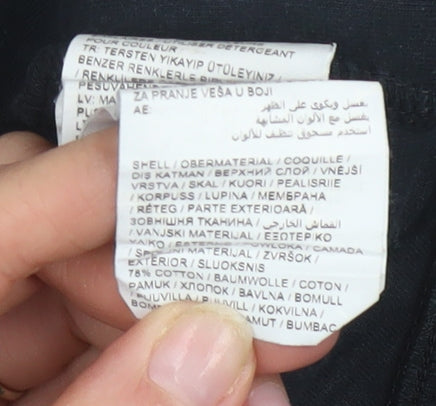 POUR COULEUR
TR: TERSTEN YIKAYIP ÜTÜLEYINIZ /
BENZER RENKLERLE
/ RENKLILER
PESUVAHE
LV: MA
ZA PRANJE VEŠA U BOJI
AE: يغسل ويكوى على الظهر
يغسل مع الألوان المشابهة
استخدم مسحوق تنظيف للألوان
SHELL / OBERMATERIAL / COQUILLE /
DIŞ KATMAN / ВЕРХНИЙ СЛОЙ / VNĚJŠÍ
VRSTVA / SKAL / KUORI / PEALISRIIE
/ KORPUSS / LUPINA / МЕМБРАНА
/ RÉTEG / PARTE EXTERIOARĂ /
ЗОВНІШНЯ ТКАНИНА / القماش الخارجي
/ VANJSKI MATERIJAL / ΕΞΩΤΕΡΙΚΟ
CAMADA
MATERIJAL / ZVRŠOK /
EXTERIOR / SLUOKSNIS
78% COTTON / BAUMWOLLE / COTON /
PAMUK / ХЛОПОК / BAVLNA / BOMULL
/ PUUVILLA / KOKVILNA /
/ BUMBAC